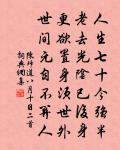 人生七十今強半
老去光陰已後身
更欲置身須世外
世間元自不人
陳師道八月十日二首
詞典網集